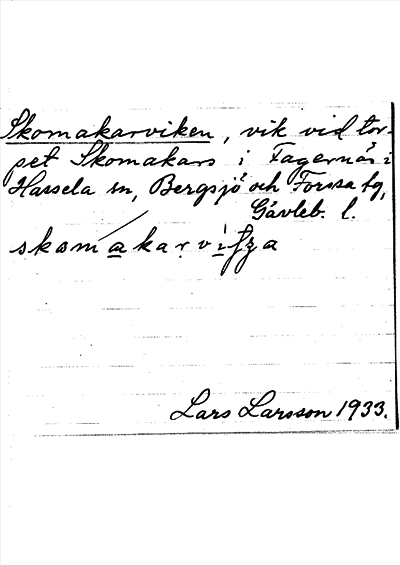 Skomakarviken, vik vid tor-
pet Skomakars i Fagernäs i
Hassela sn, Bergsjö och Forssa tg,
Gävleb. l.
Lars Larsson 1933.